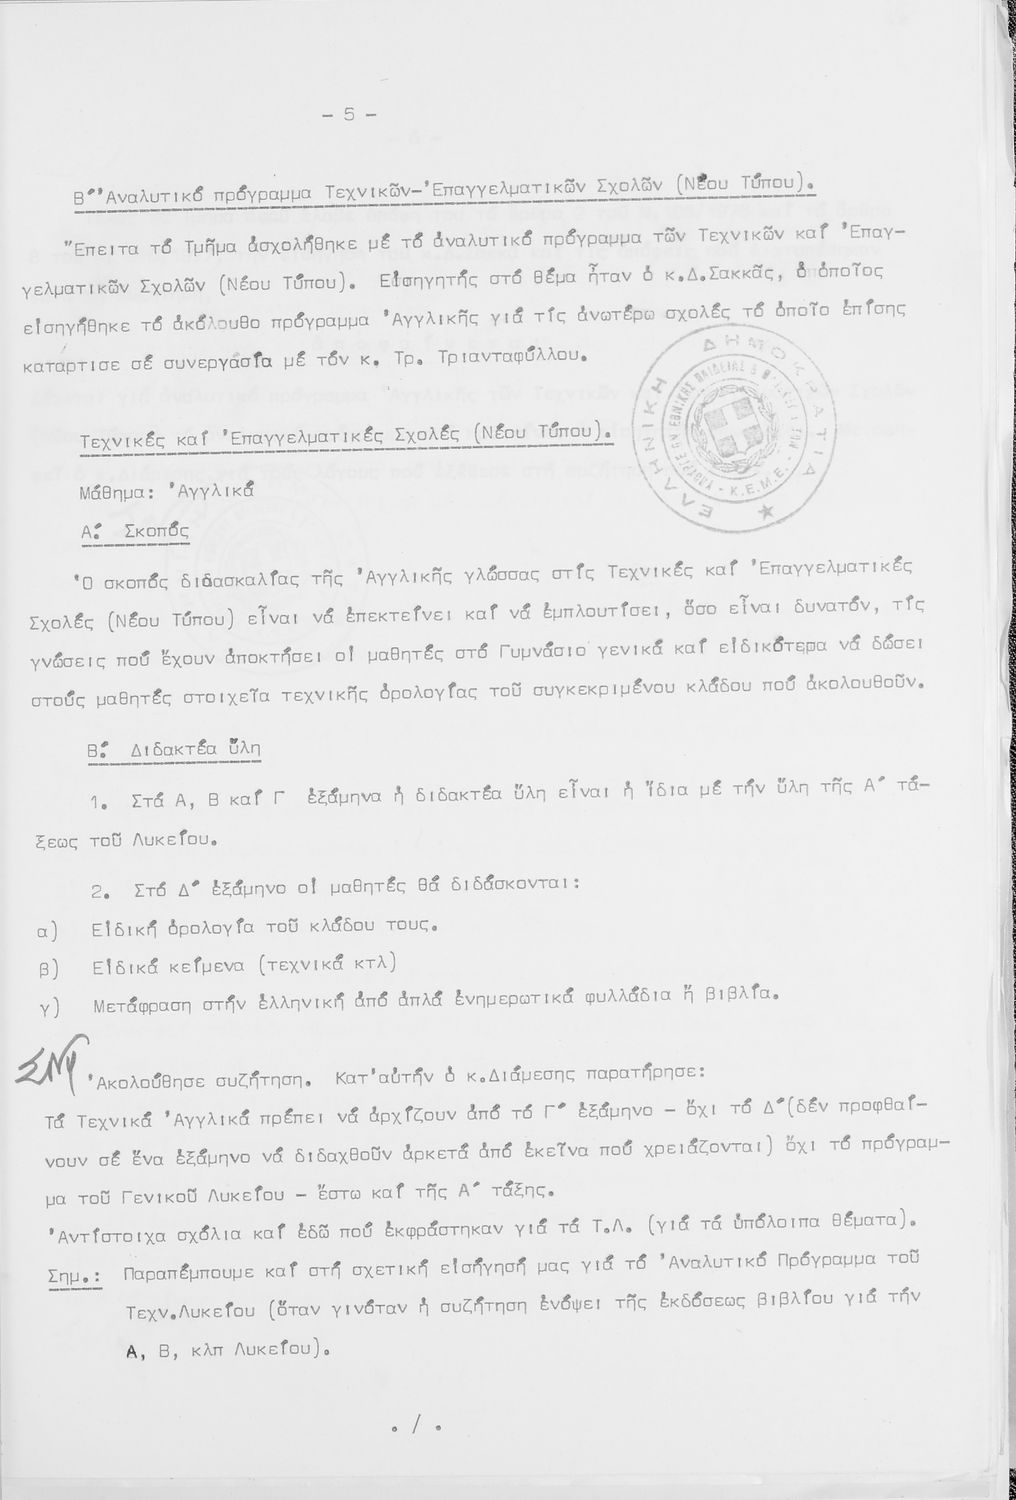 - 5 -
Β΄ Ἀναλυτικό πρόγραμμα Τεχνικῶν-Ἐπαγγελματικῶν Σχολῶν (Νέου Τύπου).
Ἔπειτα τό Τμῆμα ἀσχολήθηκε μέ τό ἀναλυτικό πρόγραμμα τῶν Τεχνικῶν καί Ἐπαγ-
γελματικῶν Σχολῶν (Νέου Τύπου). Εἰσηγητής στό θέμα ἦταν ὁ κ.Δ.Σακκᾶς, ὁ ὁποῖος
εἰσηγήθηκε τό ἀκόλουθο πρόγραμμα Ἀγγλικῆς γιά τίς ἀνωτέρω σχολές τό ὁποῖο ἐπίσης
κατάρτισε σέ συνεργασία μέ τόν κ. Τρ. Τριανταφύλλου.
ΕΛΛΗΝΙΚΗ ΔΗΜΟΚΡΑΤΙΑ
Κ.Ε.Μ.Ε.
Τεχνικές καί Ἐπαγγελματικές Σχολές (Νέου Τύπου).
Μάθημα: Ἀγγλικά
Α΄. Σκοπός
Ὁ σκοπός διδασκαλίας τῆς Ἀγγλικῆς γλώσσας στίς Τεχνικές καί Ἐπαγγελματικές
Σχολές (Νέου Τύπου) εἶναι νά ἐπεκτείνει καί νά ἐμπλουτίσει, ὅσο εἶναι δυνατόν, τίς
γνώσεις πού ἔχουν ἀποκτήσει οἱ μαθητές στό Γυμνάσιο γενικά καί εἰδικότερα νά δώσει
στούς μαθητές στοιχεῖα τεχνικῆς ὁρολογίας τοῦ συγκεκριμένου κλάδου πού ἀκολουθοῦν.
Β΄. Διδακτέα ὕλη
1. Στά Α, Β καί Γ ἑξάμηνα ἡ διδακτέα ὕλη εἶναι ἡ ἴδια μέ τήν ὕλη τῆς Α΄ τά-
ξεως τοῦ Λυκείου.
2. Στό Δ΄ ἑξάμηνο οἱ μαθητές θά διδάσκονται:
α) Εἰδική ὁρολογία τοῦ κλάδου τους.
β) Εἰδικά κείμενα (τεχνικά κτλ)
γ) Μετάφραση στήν ἑλληνική ἀπό ἁπλά ἐνημερωτικά φυλλάδια ἤ βιβλία.
Ἀκολούθησε συζήτηση. Κατ'αὐτήν ὁ κ.Διάμεσης παρατήρησε:
Τά Τεχνικά Ἀγγλικά πρέπει νά ἀρχίζουν ἀπό τό Γ΄ ἑξάμηνο - ὄχι τό Δ΄(δέν προφθαί-
νουν σέ ἕνα ἑξάμηνο νά διδαχθοῦν ἀρκετά ἀπό ἐκεῖνα πού χρειάζονται) ὄχι τό πρόγραμ-
μα τοῦ Γενικοῦ Λυκείου - ἔστω καί τῆς Α΄ τάξης.
Ἀντίστοιχα σχόλια καί ἐδῶ πού ἐκφράστηκαν γιά τά Τ.Λ. (γιά τά ὑπόλοιπα θέματα).
Σημ.: Παραπέμπουμε καί στή σχετική εἰσήγησή μας γιά τό Ἀναλυτικό Πρόγραμμα τοῦ
Τεχν.Λυκείου (ὅταν γινόταν ἡ συζήτηση ἐνόψει τῆς ἐκδόσεως βιβλίου γιά τήν
Α, Β, κλπ Λυκείου).
. / .